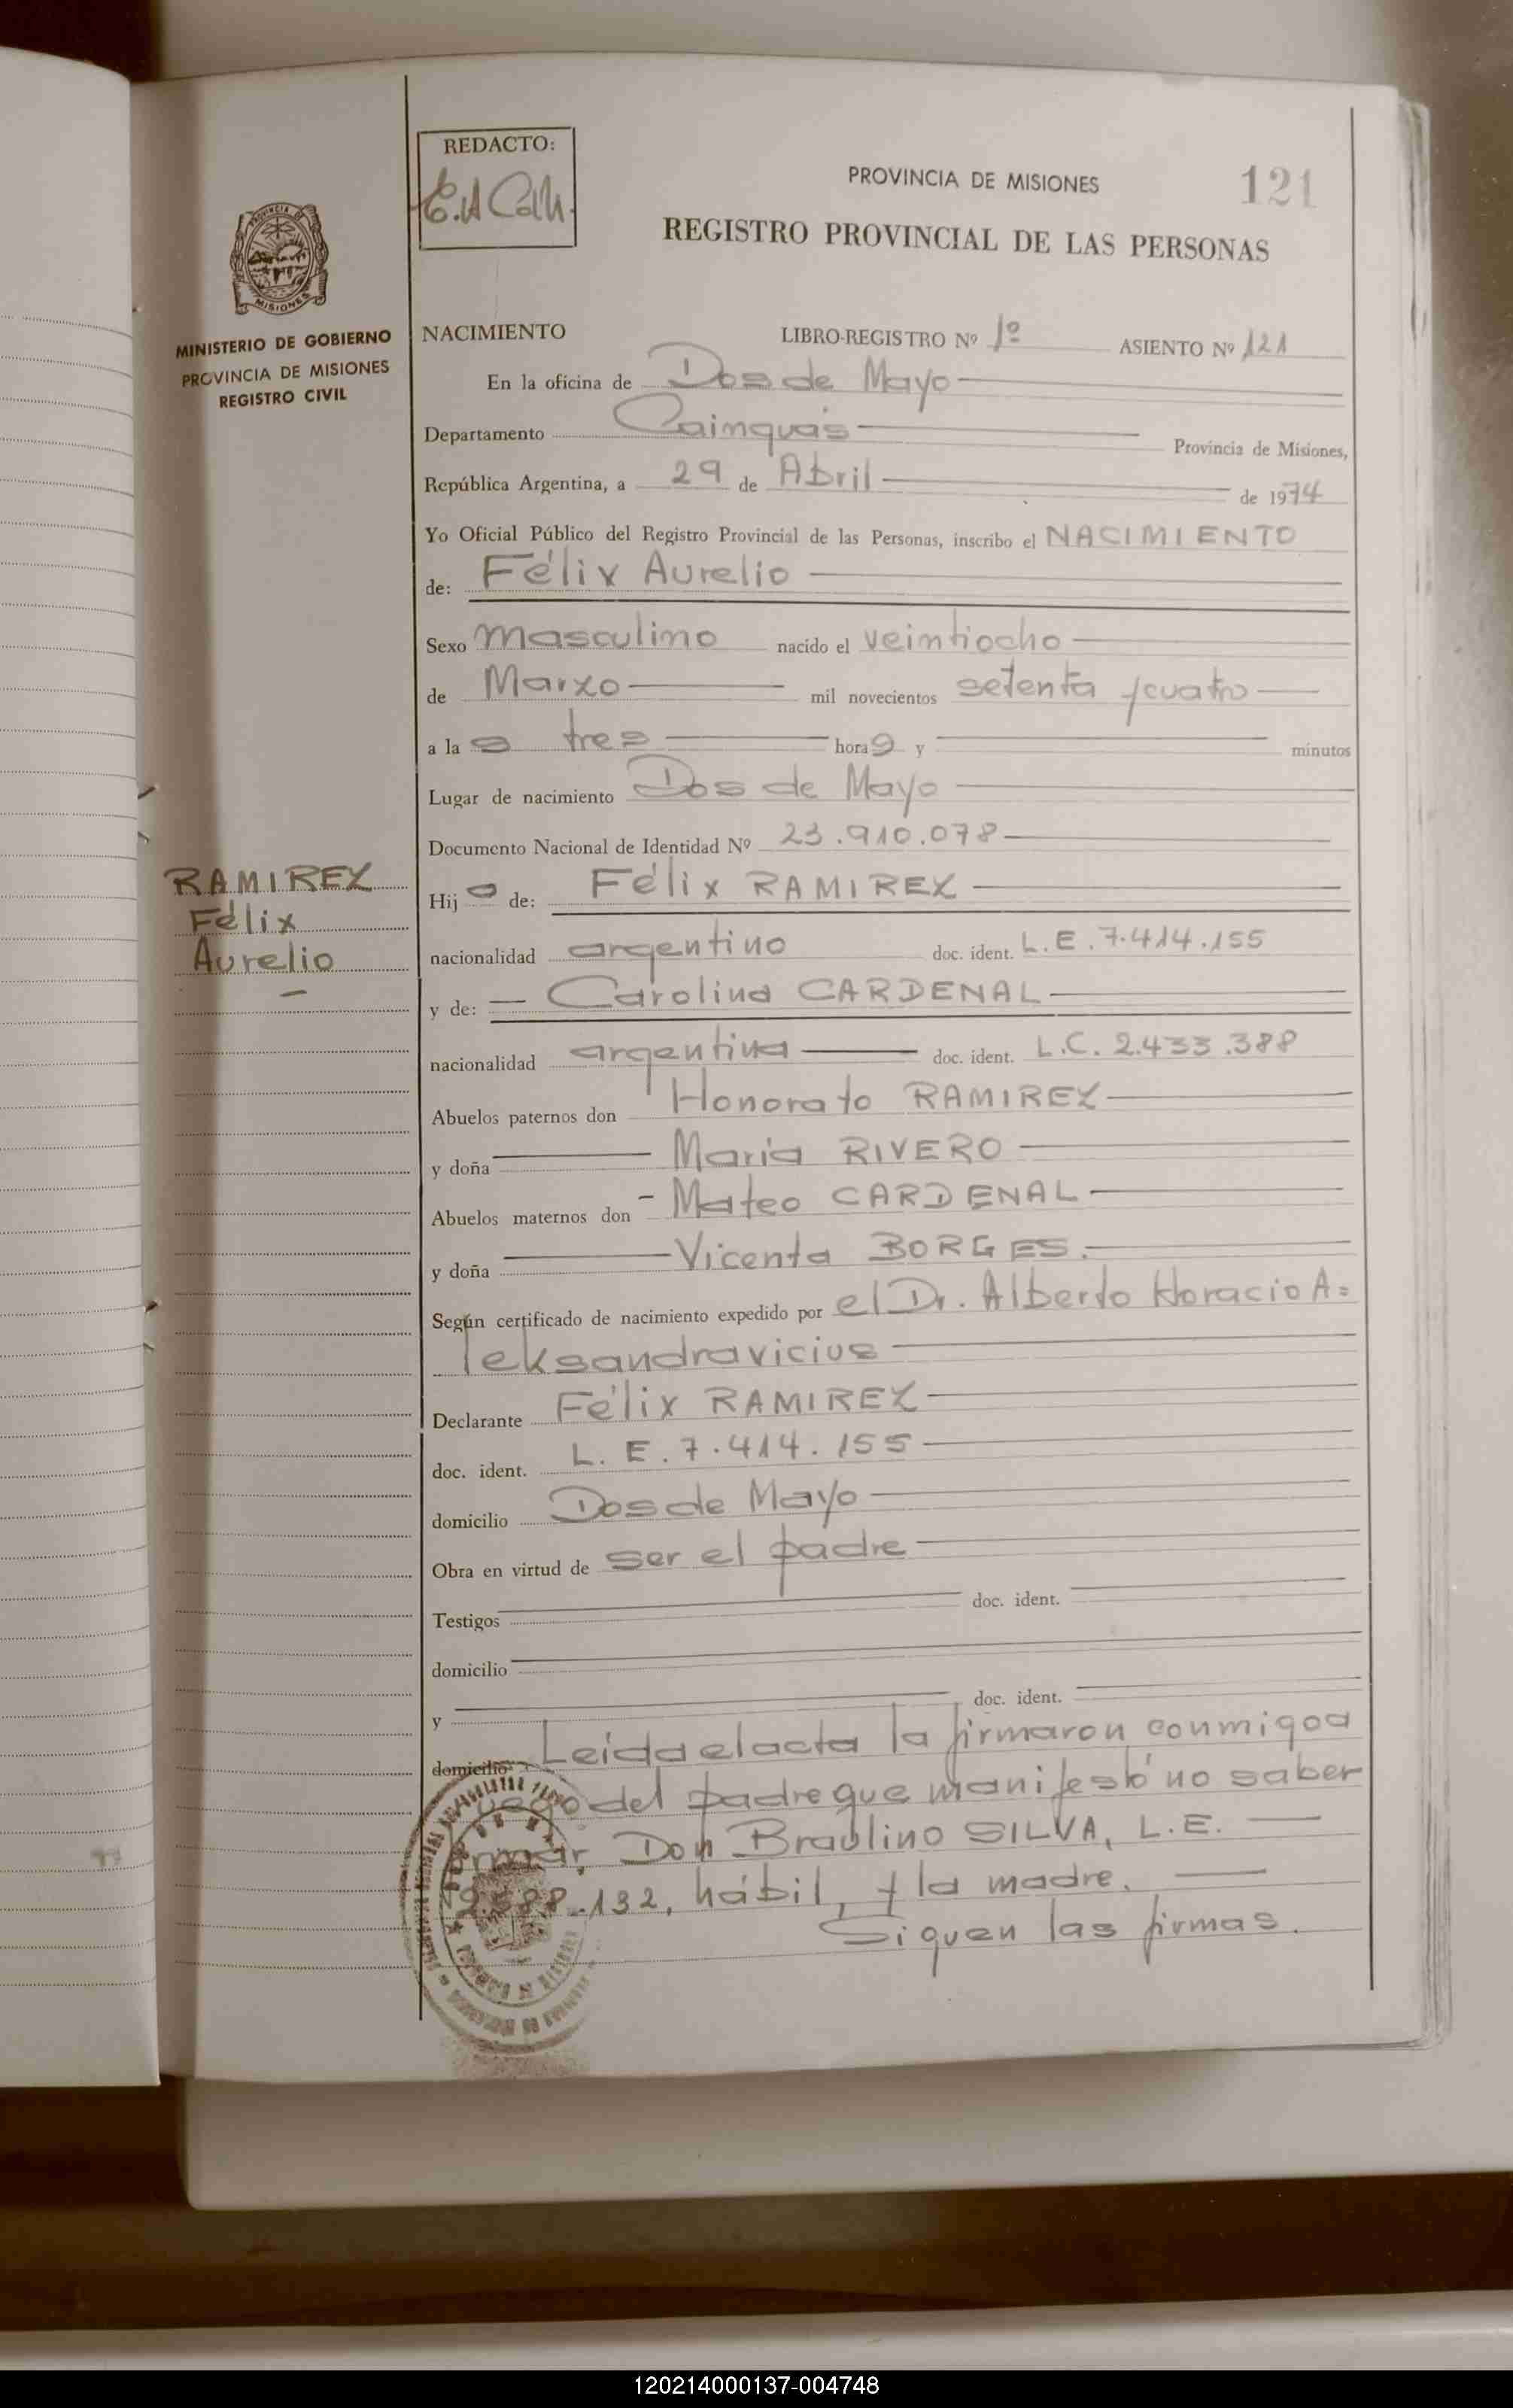 REDACTO:
PROVINCIA DE MISIONES
121
REGISTRO PROVINCIAL DE LAS PERSONAS
PROVINCIA DE
MISIONES
MINISTERIO DE GOBIERNO
PROVINCIA DE MISIONES
REGISTRO CIVIL
NACIMIENTO LIBRO-REGISTRO Nº 1º ASIENTO Nº 121
En la oficina de Dos de Mayo
Departamento Cainguás Provincia de Misiones,
República Argentina, a 29 de Abril de 1974
Yo Oficial Público del Registro Provincial de las Personas, inscribo el NACIMIENTO
de: Félix Aurelio
Sexo masculino nacido el veintiocho
de Marzo mil novecientos setenta y cuatro
a las tres horas y minutos
Lugar de nacimiento Dos de Mayo
Documento Nacional de Identidad Nº 23.910.078
RAMIREZ
Félix
Aurelio
Hijo de: Félix RAMIREZ
nacionalidad argentino doc. ident. L.E. 7.414.155
y de: Carolina CARDENAL
nacionalidad argentina doc. ident. L.C. 2.433.388
Abuelos paternos don Honorato RAMIREZ
y doña María RIVERO
Abuelos maternos don Mateo CARDENAL
y doña Vicenta BORGES.
Según certificado de nacimiento expedido por el Dr. Alberto Horacio A=
leksandravicius
Declarante Félix RAMIREZ
doc. ident. L. E. 7.414.155
domicilio Dos de Mayo
Obra en virtud de ser el padre
Testigos doc. ident.
domicilio
y doc. ident.
domicilio Leída el acta la firmaron conmigo a
del padre que manifestó no saber
firmar, Don Braulino SILVA, L.E.
.132, hábil, y la madre.
Siguen las firmas.
120214000137-004748